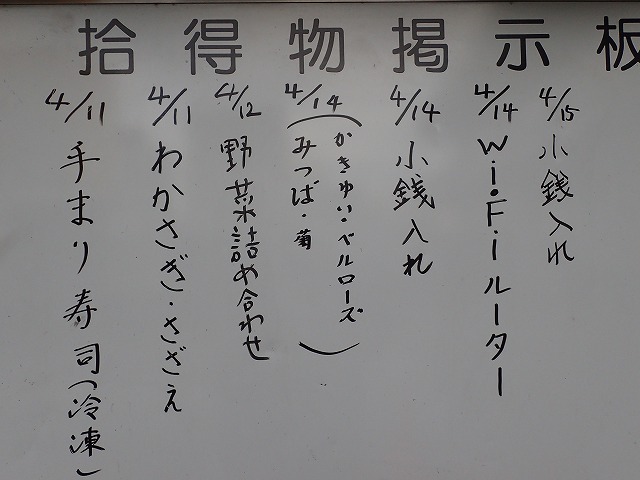 拾得物掲示板
4/15 小銭入れ
4/14 Wi・Fiルーター
4/14 小銭入れ
4/14 (かきゅい・ベルローズ
みつば・菊)
4/12 野菜詰め合わせ
4/11 わかさぎ・さざえ
4/11 手まり寿司(冷凍)